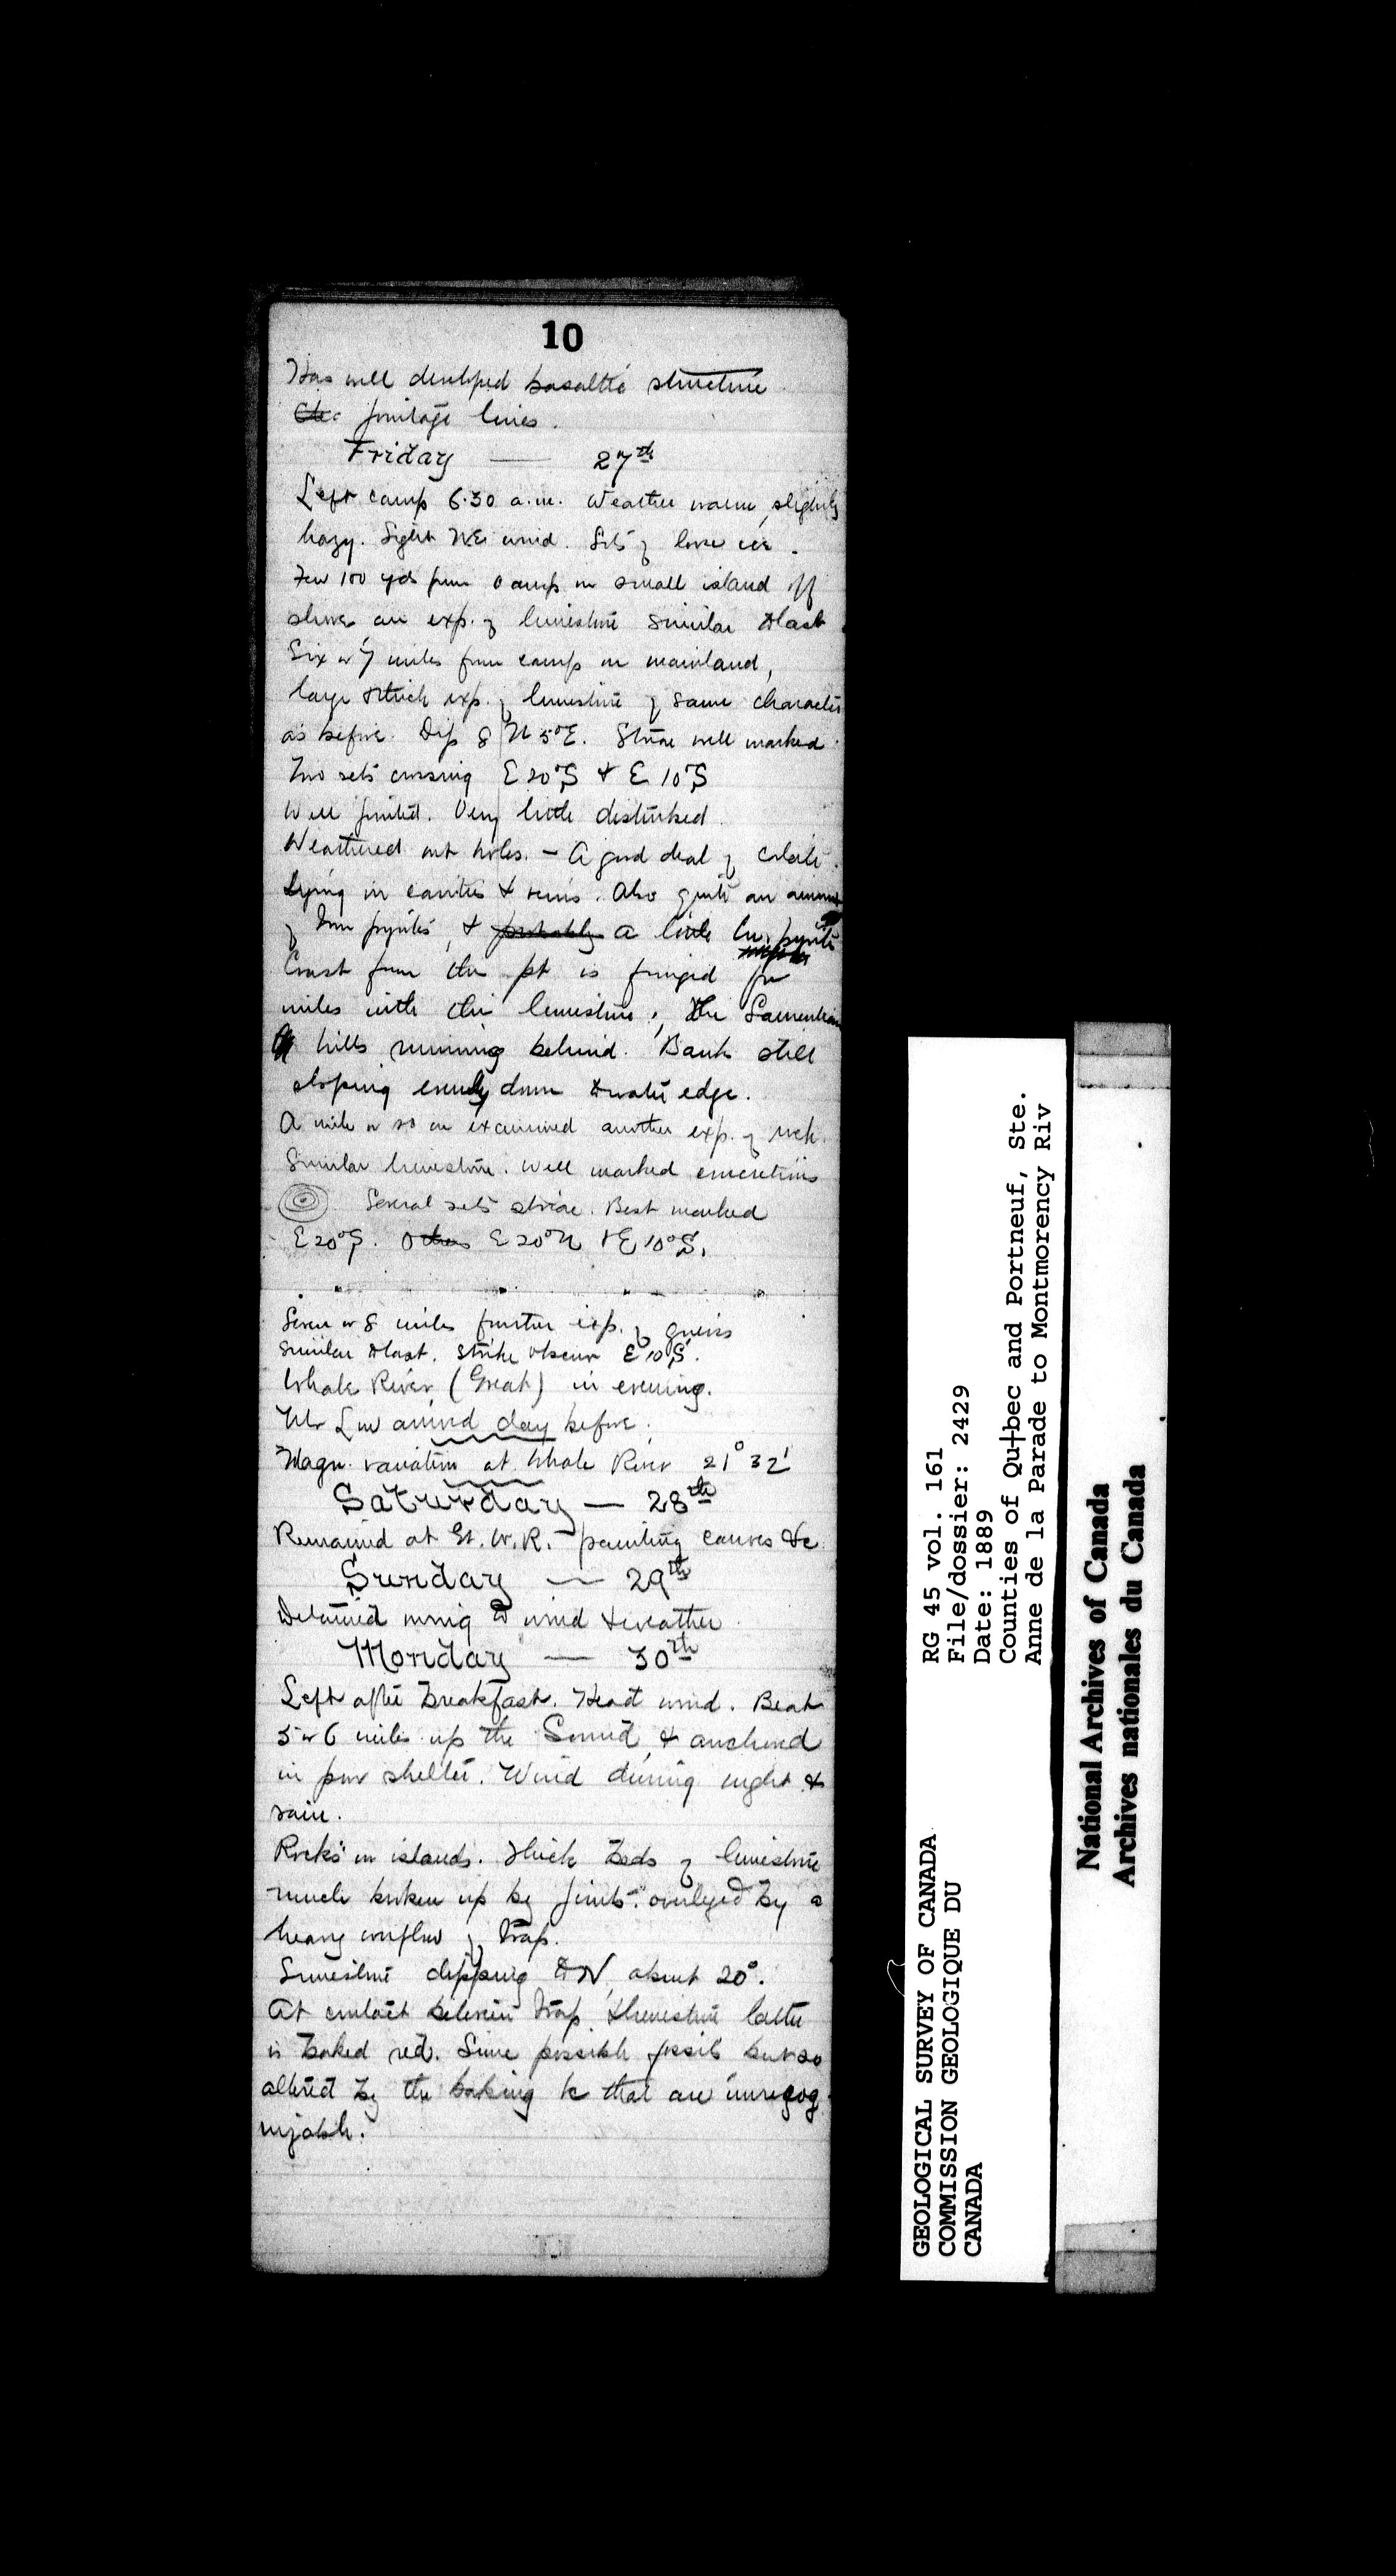 10
Has well developed basaltic structure
jointage lines.
Friday — 27th
Left camp 6.30 a.m. Weather warm, slightly
hazy. Light NE wind. Lots of loose ice.
Few 100 yds from camp on small island off
shore an exp. of limestone similar to last.
Six or 7 miles from camp on mainland,
large & thick exp. of limestone of same character
as before. Dip 8 N 5°E. Striae well marked.
Two sets crossing E 20°S & E 10°S
Well jointed. Very little disturbed.
Weathered out holes. – A good deal of calcite
lying in cavities & veins. Also quite an amount
of Iron pyrites, & probably a little Cu. pyrite
Coast from this pt is fringed for
miles with this limestone, the Laurentian
hills running behind. Bank still
sloping evenly down to water edge.
A mile or so on examined another exp. of rock.
Similar limestone. Well marked concretions
Several sets striae. Best marked
E 20°S. Others E 20°N & E 10°S.
Seven or 8 miles further exp. of gneiss
similar to last. Strike obscure E 10°S.
Whale River (Great) in evening.
Mr Low arrived day before.
Magn. variation at Whale River 21° 32'
Saturday — 28th
Remained at Gt. W. R. – painting canoes &c
Sunday — 29th
Detained owing to wind & weather
Monday — 30th
Left after breakfast. Head wind. Beat
5 or 6 miles up the Sound, & anchored
in poor shelter. Wind during night &
rain.
Rocks on islands. Thick beds of limestone
much broken up by joints. overlyed by a
heavy overflow of trap.
Limestone dipping to W, about 20°.
At contact between trap & limestone latter
is baked red. Some possible fossils but so
altered by the baking &c that are unrecog
nizable.
GEOLOGICAL SURVEY OF CANADA
COMMISSION GEOLOGIQUE DU
CANADA
RG 45 vol. 161
File/dossier: 2429
Date: 1889
Counties of Qu†bec and Portneuf, Ste.
Anne de la Parade to Montmorency Riv
National Archives of Canada
Archives nationales du Canada